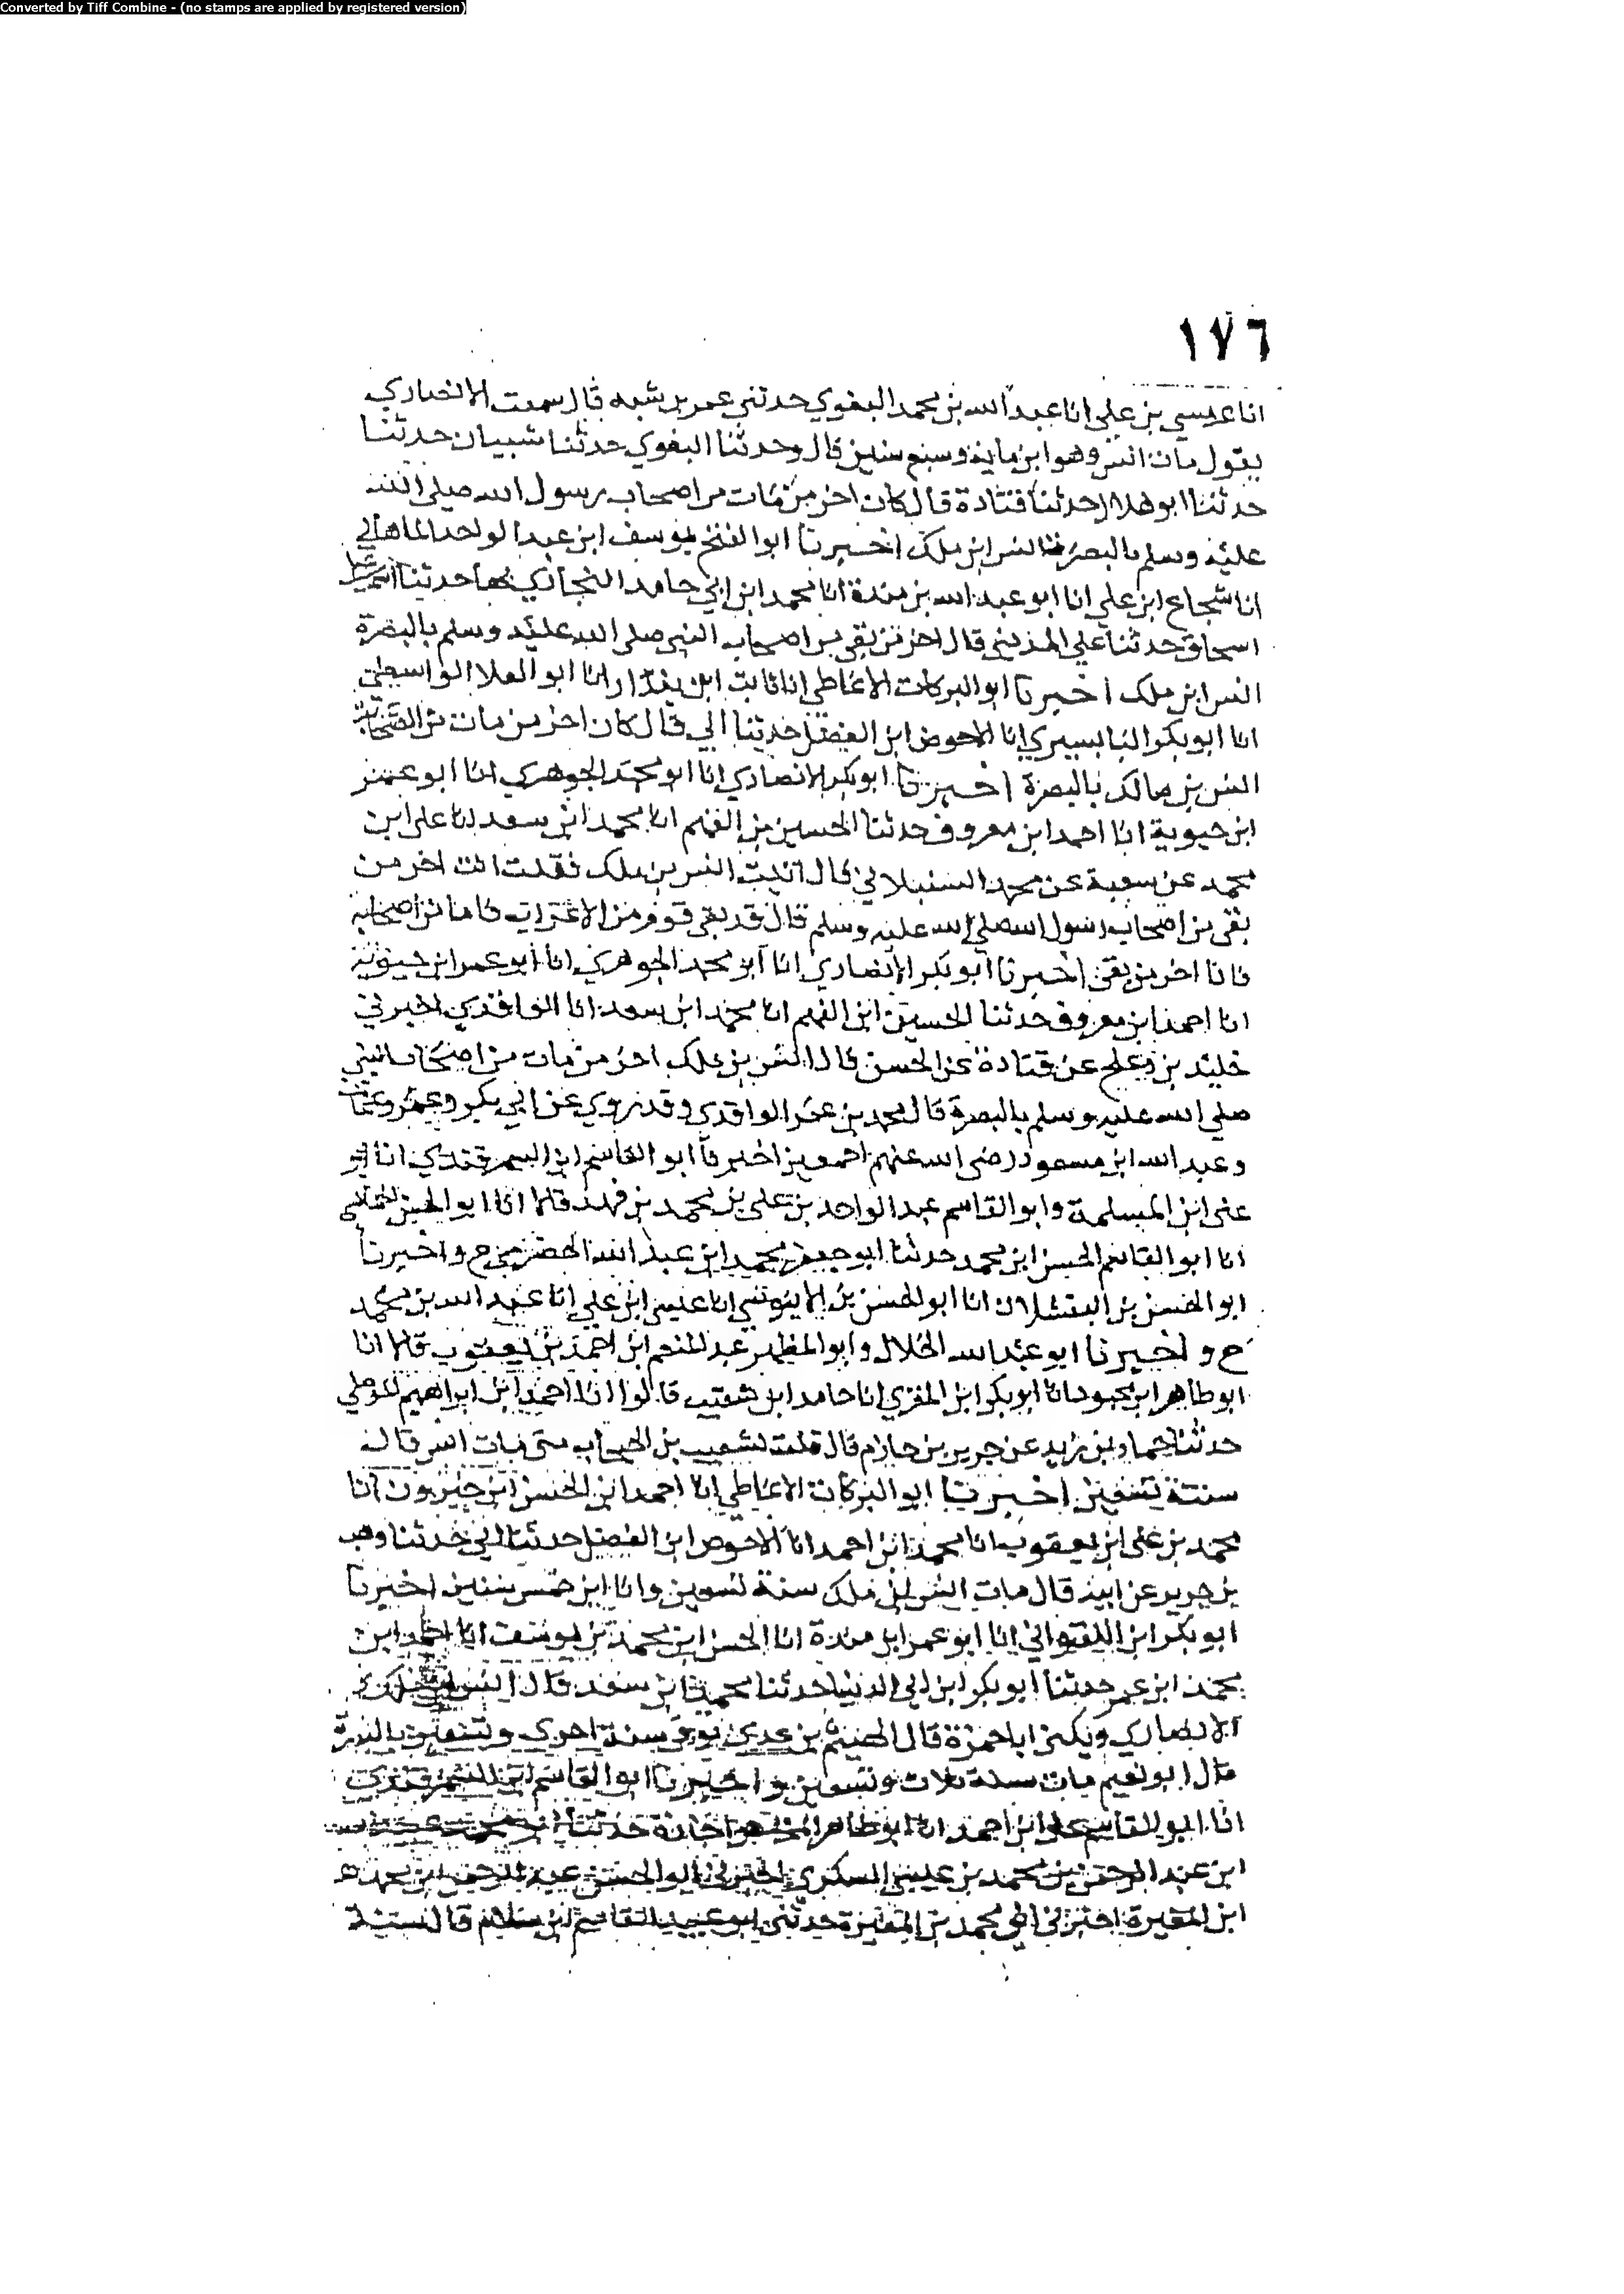 Converted by Tiff Combine - (no stamps are applied by registered version)
١٧٦
انا عيسي بن علي انا عبد الله بن محمد البغوي حدثني عمر بن شبه قال سمعت الانصاري
يقول مات انس وهو ابن ماية وسبع سنين قال وحدثنا البغوي حدثنا شيبان حدثنا
حدثنا ابو هلال حدثنا قتادة قال كان اخر من مات من اصحاب رسول الله صلى الله
عليه وسلم بالبصرة انس ابن ملك اخبرنا ابو الفتح يوسف ابن عبد الواحد الماهاني
انا شجاع ابن علي انا ابو عبد الله بن مندة انا محمد ابن ابي حامد البخاري بها حدثنا
اسحاق حدثنا علي المديني قال اخر من بقي من اصحاب النبي صلى الله عليه وسلم بالبصرة
انس ابن ملك اخبرنا ابو البركات الانماطي انا ثابت ابن بندار انا ابو العلا الواسطي
انا ابو بكر البابسيري انا الاحوص ابن الفضل حدثنا ابي قال كان اخر من مات من الصحابة
انس بن مالك بالبصرة اخبرنا ابو بكر الانصاري انا ابو محمد الجوهري انا ابو عمر
ابن حيوية انا احمد ابن معروف حدثنا الحسين بن الفهم انا محمد ابن سعد انا علي ابن
محمد عن شعبة عن محمد السنبلاني قال اتيت انس بن ملك فقلت انت اخر من
بقي من اصحاب رسول الله صلى الله عليه وسلم قال قد بقي قوم من الاعراب فاما من اصحابه
فانا اخر من بقي اخبرنا ابو بكر الانصاري انا ابو محمد الجوهري انا ابو عمر ابن حيوية
انا احمد ابن معروف حدثنا الحسين ابن الفهم انا محمد ابن سعد انا الواقدي اخبرني
خليد بن دعلج عن قتادة عن الحسن قال انس بن ملك اخر من مات من اصحاب النبي
صلي الله عليه وسلم بالبصرة قال محمد بن عمر الواقدي وقد روي عن ابي بكر وعمر وعثمان
وعبد الله ابن مسعود رضي الله عنهم اجمعين اخبرنا ابو القاسم ابن السمرقندي انا ابو
علي ابن المسلمة وابو القاسم عبد الواحد بن علي بن محمد بن فهد قالا انا ابو الحسن
انا ابو القاسم الحسن ابن محمد حدثنا ابو جعفر محمد ابن عبد الله الحضرمي ح واخبرنا
ابو الحسن بن البقشلان انا ابو الحسن بن الابنوسي انا عيسى ابن علي انا عبد الله بن محمد
ح و اخبرنا ابو عبد الله الخلال وابو المظهر عبد المنعم ابن احمد بن يعقوب قالا انا
ابو طاهر ابن محمود انا ابو بكر ابن المقري انا حامد ابن شعيب قالوا انا احمد ابن ابراهيم الموصلي
حدثنا حماد بن زيد عن جرير بن حازم قال قلت لشعيب بن الحبحاب متى مات انس قال
سنة تسعين اخبرنا ابو البركات الانماطي انا احمد ابن الحسن ابن خيرون انا
محمد بن علي ابن يعقوب انا محمد ابن احمد انا الاحوص ابن الفضل حدثنا ابي حدثنا وهب
بن جرير عن ابيه قال مات انس ابن ملك سنة تسعين وانا ابن خمس سنين اخبرنا
ابو بكر ابن اللفتواني انا ابو عمر ابن مندة انا الحسن ابن محمد بن يوسف انا احمد ابن
محمد ابن عمر حدثنا ابو بكر ابن ابي الدنيا حدثنا محمد ابن سعد قال انس
الانصاري ويكنى ابا حمزة قال الهيثم بن عدي توفي سنة احدى وتسعين
قال ابو نعيم مات سنة ثلاث وتسعين و اخبرنا ابو القاسم ابن السمرقندي
انا ابو القاسم علي ابن احمد انا ابو طاهر المخلص اجازة حدثنا
ابن عبد الرحمن بن محمد بن عيسى السكري اخبرني ابو الحسن عبد الرحمن ابن محمد
ابن المغيرة اخبرني ابي محمد بن المغيرة حدثني ابو عبيد القاسم ابن سلام قال سنة